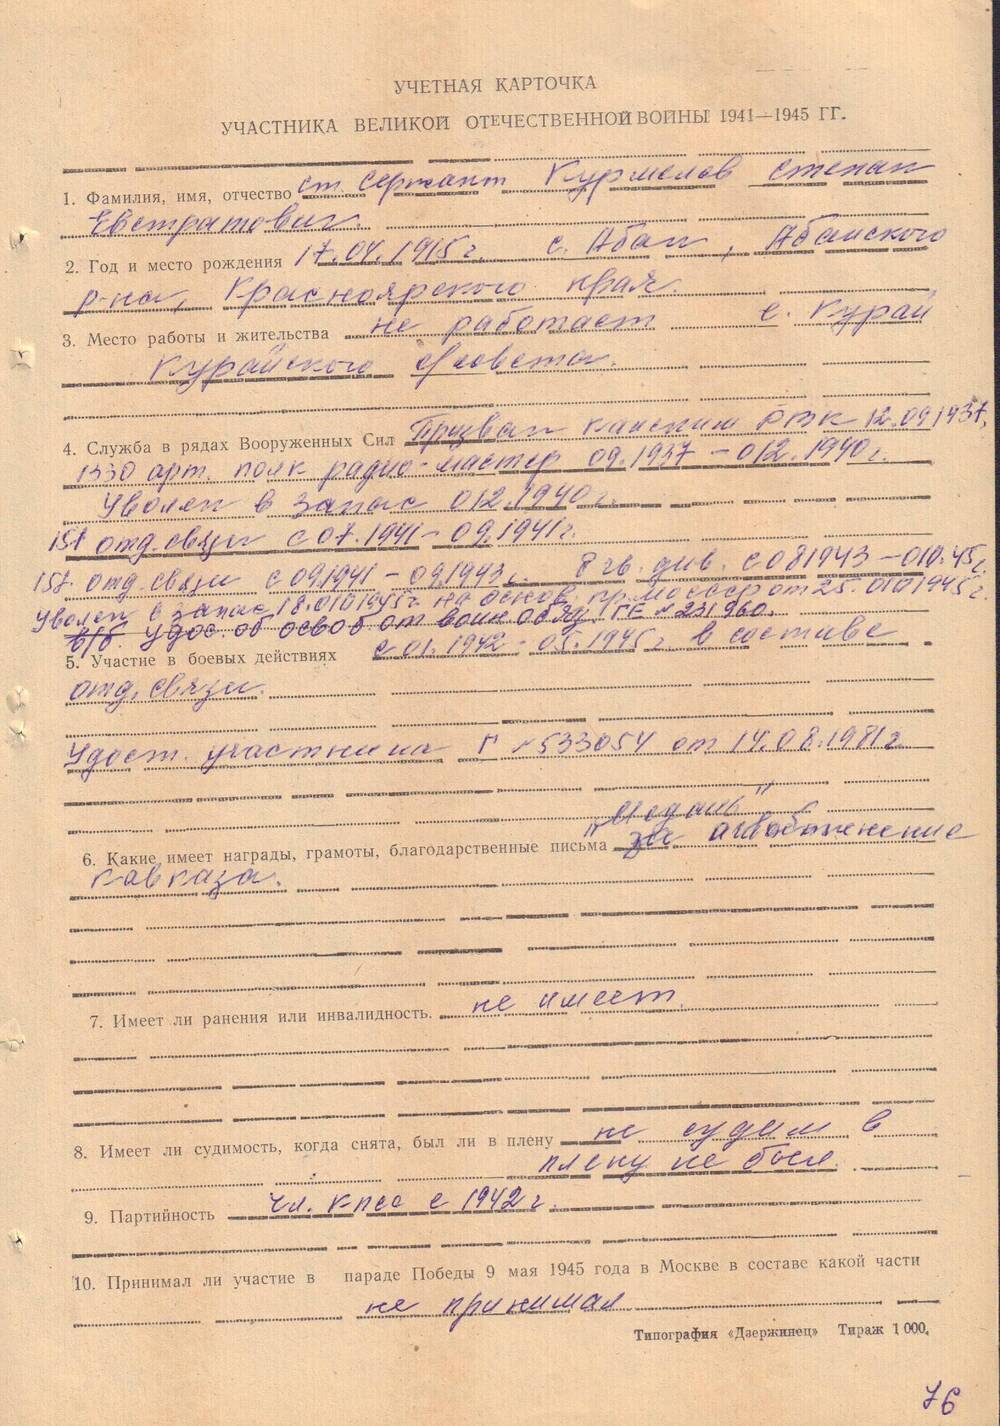 УЧЕТНАЯ КАРТОЧКА
УЧАСТНИКА ВЕЛИКОЙ ОТЕЧЕСТВЕННОЙ ВОЙНЫ 1941—1945 ГГ.
1. Фамилия, имя, отчество ст. сержант Курмелов Степан
Евстратович.
2. Год и место рождения 17.04.1915г. с. Абан, Абанского
р-на, Красноярского края.
3. Место работы и жительства не работает с. Курай
Курайского с/совета.
4. Служба в рядах Вооруженных Сил Призван Канским РВК 12.09.1937.
1330 арт. полк радио-мастер 09.1937 – 012.1940г.
Уволен в запас 012.1940г.
157 отд. связи с 07.1941 – 09.1941г.
157. отд. связи с 09.1941 – 09.1943г. 8 гв. див. с 081943 – 010.45г.
Уволен в запас 18.0101945г. на основ. пр. от 25.0101945г.
удос. об освоб от воин обяз. ГЕ № 231960.
5. Участие в боевых действиях с 01.1942 - 05.1945г. в составе
отд. связи.
Удост. участника Г № 533054 от 14.08.1981г.
"Медаль"
6. Какие имеет награды, грамоты, благодарственные письма за освобождение
Кавказа.
7. Имеет ли ранения или инвалидность. не имеет.
8. Имеет ли судимость, когда снята, был ли в плену не судим в
плену не был.
9. Партийность чл. КПСС с 1942г.
10. Принимал ли участие в параде Победы 9 мая 1945 года в Москве в составе какой части
не принимал
Типография «Дзержинец» Тираж 1000.
76